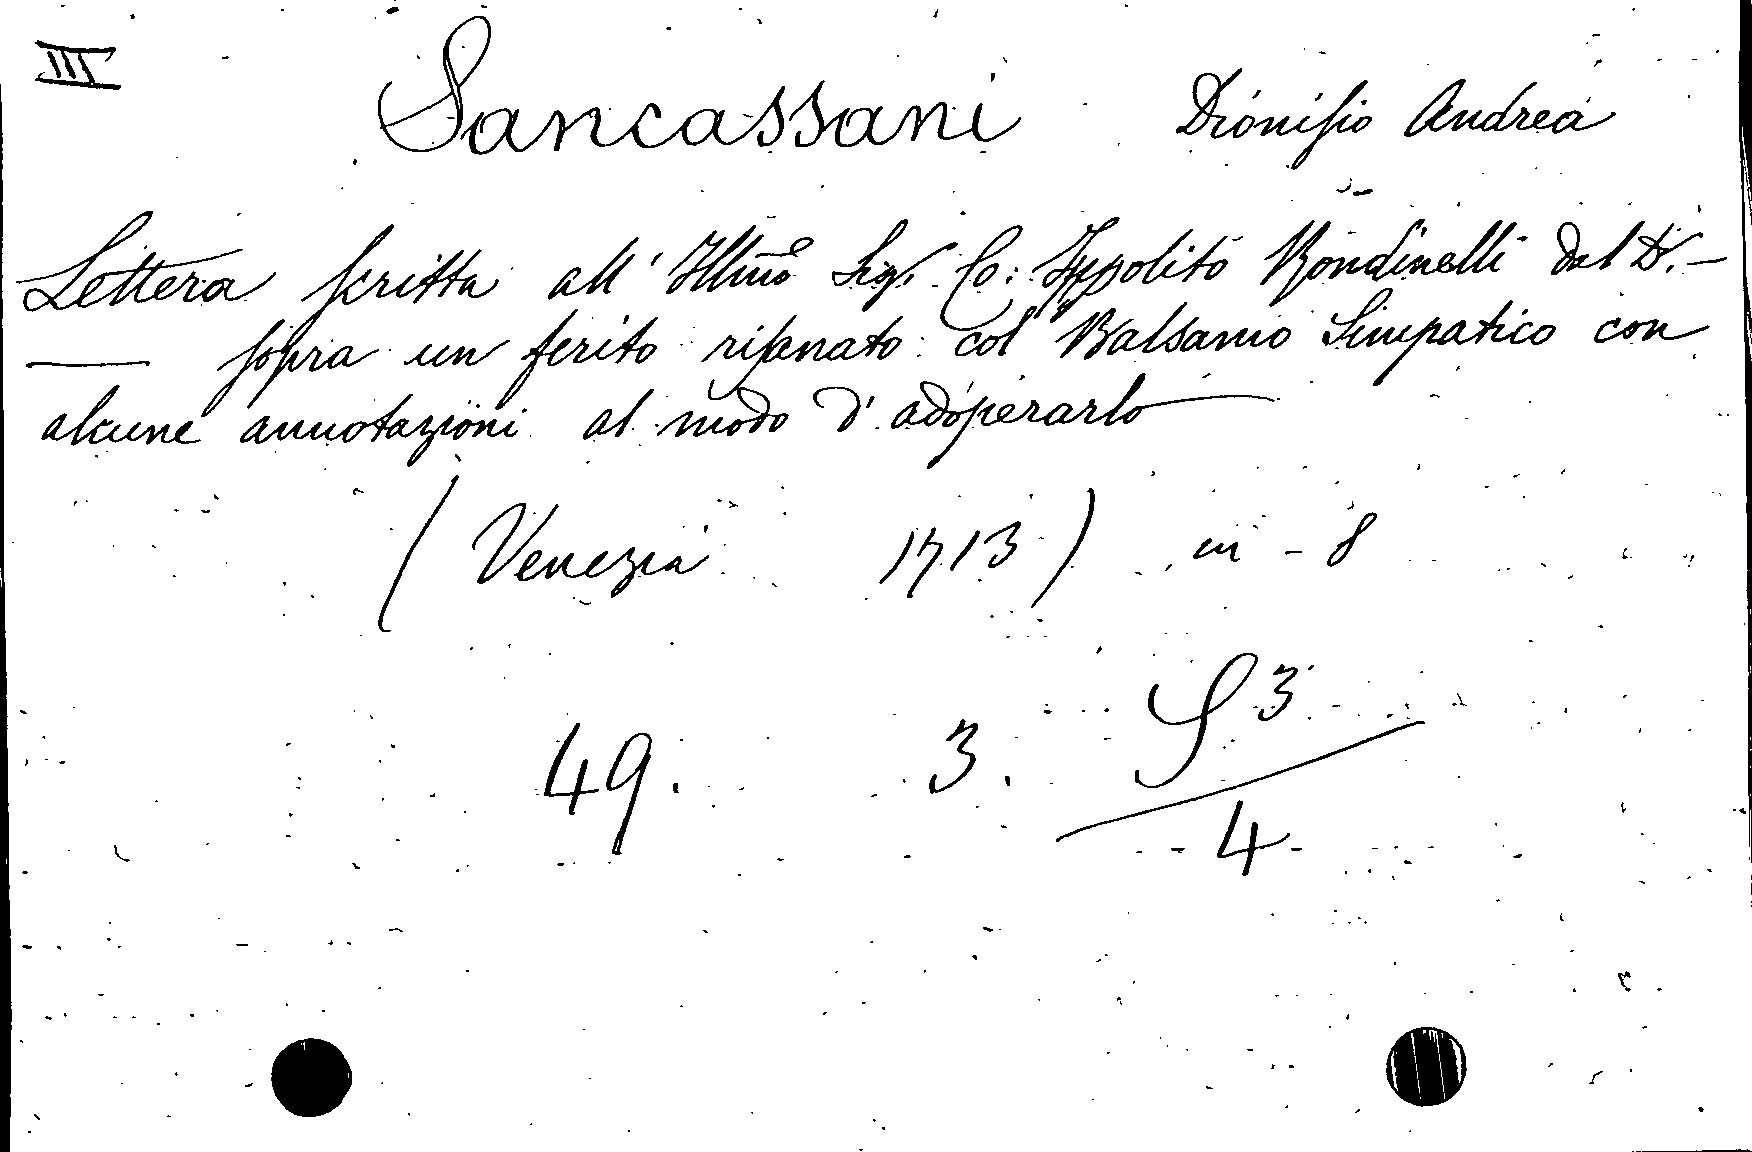 III
Sancassani Dionisio Andrea
Lettera scritta all' Illmo Sigr. Co: Ippolito Rondinelli dal D. —
— sopra un ferito risanato col Balsamo Simpatico con
alcune annotazioni al modo d'adoperarlo —
(Venezia 1713) in - 8
49. 3. S 3
4